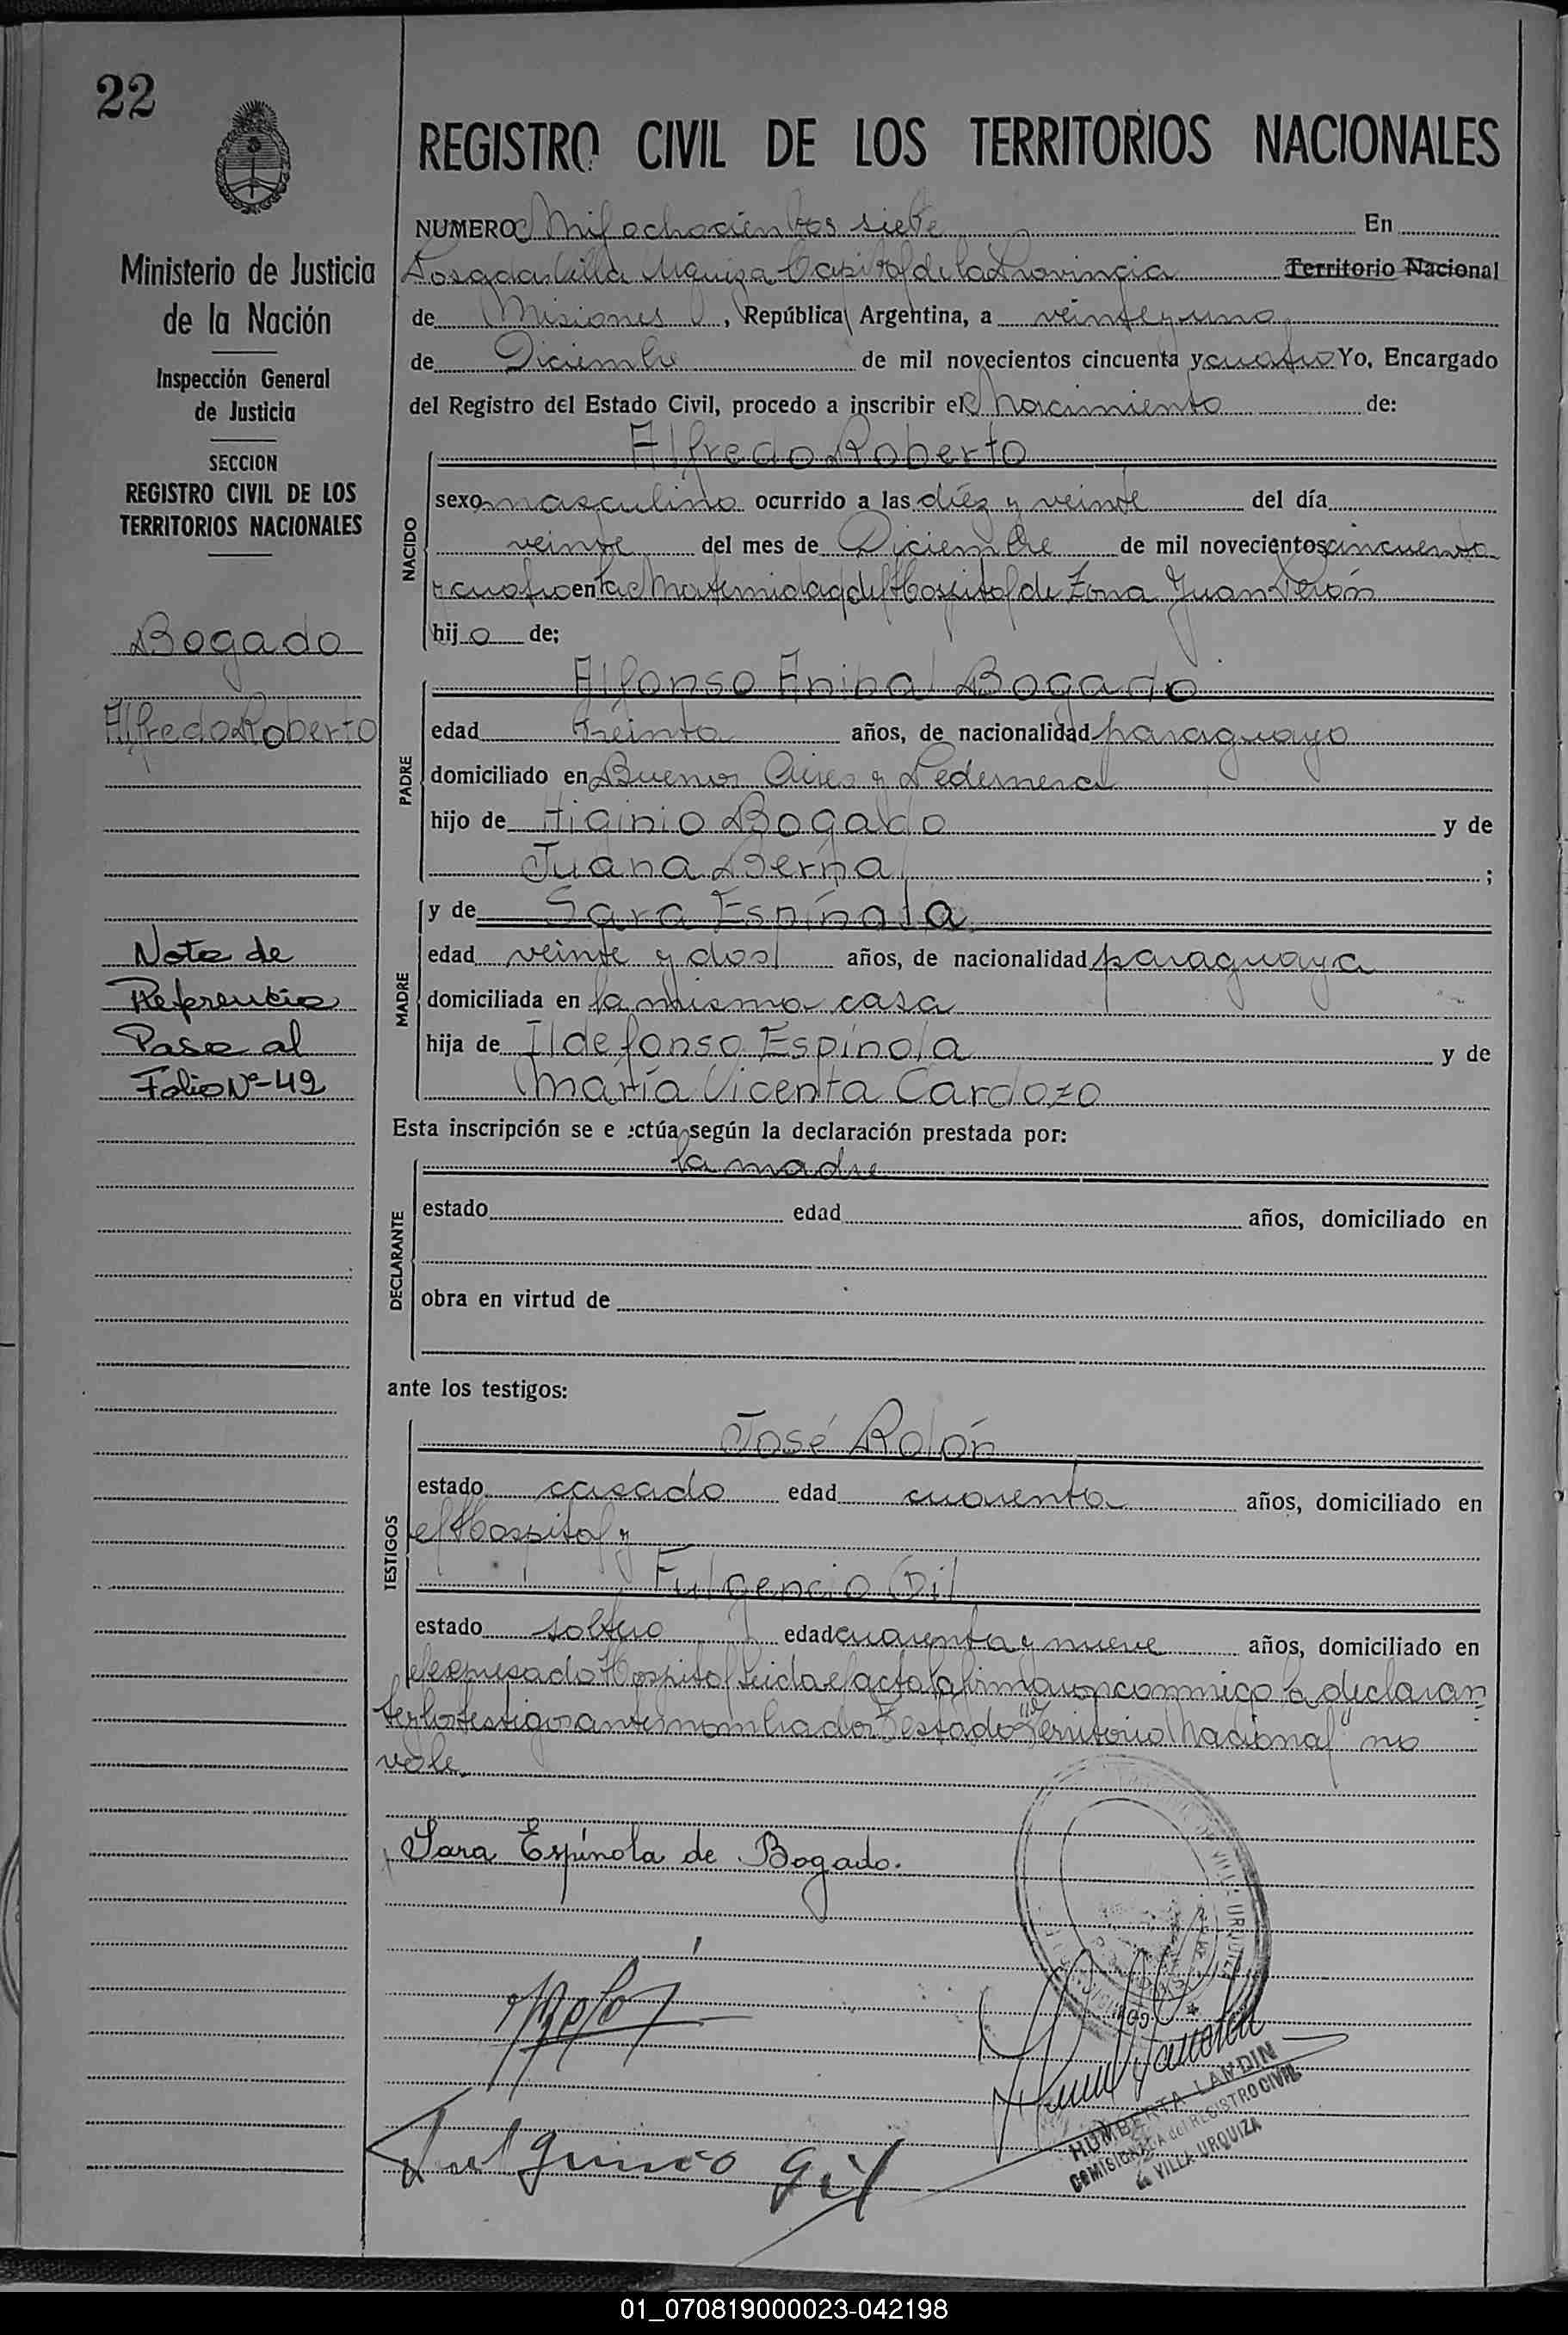 22
REGISTRO CIVIL DE LOS TERRITORIOS NACIONALES
Ministerio de Justicia
de la Nación
Inspección General
de Justicia
SECCION
REGISTRO CIVIL DE LOS
TERRITORIOS NACIONALES
Bogado
Alfredo Roberto
Nota de
Referencia
Pase al
Folio Nº-49
NUMERO Mil ochocientos siete En
Posadas Villa Urquiza Capital de la Provincia Territorio Nacional
de Misiones, República Argentina, a veinte y uno
de Diciembre de mil novecientos cincuenta y cuatro Yo, Encargado
del Registro del Estado Civil, procedo a inscribir el Nacimiento de:
Alfredo Roberto
NACIDO
sexo masculino ocurrido a las diéz y veinte del día
veinte del mes de Diciembre de mil novecientos cincuenta
y cuatro en la Maternidad del Hospital de Zona Juan Perón
hijo de:
Alfonso Anibal Bogado
PADRE
edad treinta años, de nacionalidad paraguayo
domiciliado en Buenos Aires y Pedernera
hijo de Higinio Bogado y de
Juana Serna ;
MADRE
y de Sara Espínola
edad veinte y dos años, de nacionalidad paraguaya
domiciliada en la misma casa
hija de Ildefonso Espínola y de
María Vicenta Cardozo
Esta inscripción se e ectúa según la declaración prestada por:
la madre
DECLARANTE
estado edad años, domiciliado en
obra en virtud de
ante los testigos:
José Rolón
TESTIGOS
estado casado edad cuarenta años, domiciliado en
el Hospital y
Fulgencio Gil
estado soltero edad cuarenta y nueve años, domiciliado en
el expresado Hospital Leida el acta la firmaron conmigo la declaran
te y los testigos antes nombrados Testado "Territorio Nacional" no
vale.
Sara Espínola de Bogado.
Fulgencio Gil
HUMBERTA LANDIN
COMISIONADA del REGISTRO CIVIL
de VILLA URQUIZA
01_070819000023-042198